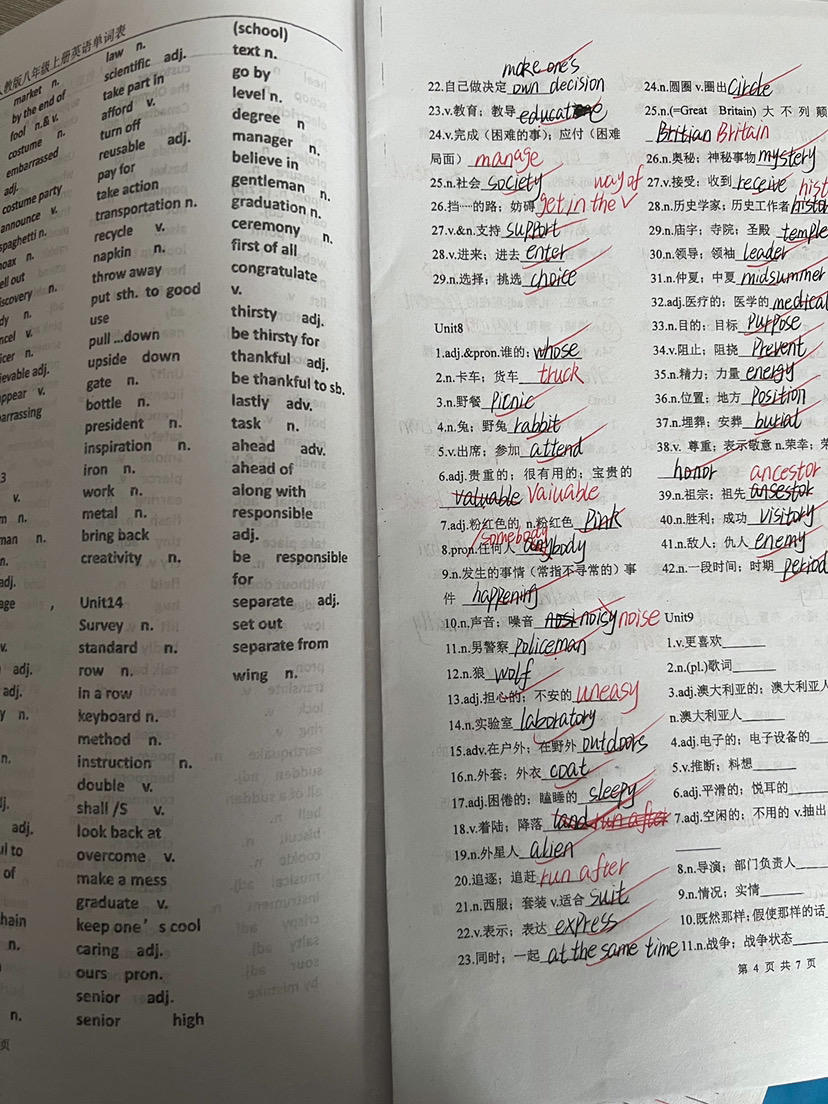 人教版八年级上册英语单词表
market n.
by the end of
fool n.& v.
costume n.
embarrassed
adj.
costume party
announce v.
spaghetti n.
hoax n.
sell out
discovery n.
cel v.
icer n.
ievable adj.
ppear v.
arrassing
3
v.
n.
man n.
n.
adj.
age ,
v.
adj.
adj.
y n.
n.
j.
adj.
ul to
of
hain
n.
n.
页
law n.
scientific adj.
take part in
afford v.
turn off
reusable adj.
pay for
take action
transportation n.
recycle v.
napkin n.
throw away
put sth. to good
use
pull ...down
upside down
gate n.
bottle n.
president n.
inspiration n.
iron n.
work n.
metal n.
bring back
creativity n.
Unit14
Survey n.
standard n.
row n.
in a row
keyboard n.
method n.
instruction n.
double v.
shall /S v.
look back at
overcome v.
make a mess
graduate v.
keep one's cool
caring adj.
ours pron.
senior adj.
senior high
(school)
text n.
go by
level n.
degree n
manager n.
believe in
gentleman n.
graduation n.
ceremony n.
first of all
congratulate
v.
thirsty adj.
be thirsty for
thankful adj.
be thankful to sb.
lastly adv.
task n.
ahead adv.
ahead of
along with
responsible
adj.
be responsible
for
separate adj.
set out
separate from
wing n.
make one's
22.自己做决定 own decision
23.v.教育；教导 educate
24.v.完成（困难的事）；应付（困难
局面） manage
25.n.社会 society
way of
26.挡……的路；妨碍 get in the
27.v.&n.支持 support
28.v.进来；进去 enter
29.n.选择；挑选 choice
Unit8
1.adj.&pron.谁的； whose
2.n.卡车；货车 truck
3.n.野餐 picnic
4.n.兔；野兔 rabbit
5.v.出席；参加 attend
6.adj.贵重的；很有用的；宝贵的
valuable Vaiuable
7.adj.粉红色的 n.粉红色 Pink
/somebody
8.pron.任何人 anybody
9.n.发生的事情（常指不寻常的）事
件 happening
10.n,声音；噪音 nosi noisy noise
11.n.男警察 Policeman
12.n.狼 wolf
13.adj.担心的；不安的 uneasy
14.n.实验室 laboratory
15.adv.在户外；在野外 outdoors
16.n.外套；外衣 coat
17.adj.困倦的；瞌睡的 sleepy
18.v.着陆；降落 land run after
19.n.外星人 alien
20.追逐；追赶 run after
21.n.西服；套装 v.适合 suit
22.v.表示；表达 express
23.同时；一起 at the same time
24.n.圆圈 v.圈出 Circle
25.n.(=Great Britain) 大不列颠
Britian Britain
26.n.奥秘；神秘事物 mystery
27.v.接受；收到 receive
hist
28.n.历史学家；历史工作者 histor
29.n.庙宇；寺院；圣殿 temple
30.n.领导；领袖 leader
31.n.仲夏；中夏 midsummer
32.adj.医疗的；医学的 medical
33.n.目的；目标 purpose
34.v.阻止；阻挠 Prevent
35.n.精力；力量 energy
36.n.位置；地方 Position
37.n.埋葬；安葬 burial
38.v. 尊重；表示敬意 n.荣幸；荣
honor
ancestor
39.n.祖宗；祖先 ansestor
40.n.胜利；成功 visitory
41.n.敌人；仇人 enemy
42.n.一段时间；时期 period
Unit9
1.v.更喜欢
2.n.(pl.)歌词
3.adj.澳大利亚的；澳大利亚人
n.澳大利亚人
4.adj.电子的；电子设备的
5.v.推断；料想
6.adj.平滑的；悦耳的
7.adj.空闲的；不用的 v.抽出
8.n.导演；部门负责人
9.n.情况；实情
10.既然那样；假使那样的话
11.n.战争；战争状态
第 4 页 共 7 页